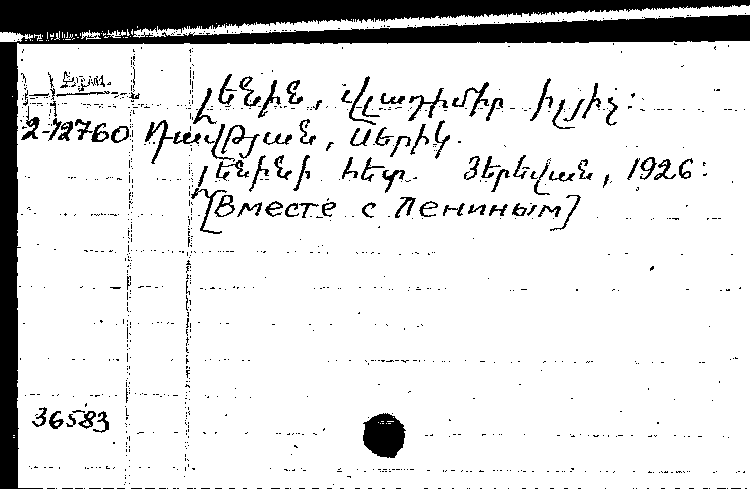 Լենին, Վլադիմիր Իլյիչ:
2-12760 Դավթյան, Սերիկ.
Լենինի հետ. Յերեվան, 1926:
[Вместе с Лениным]
36583